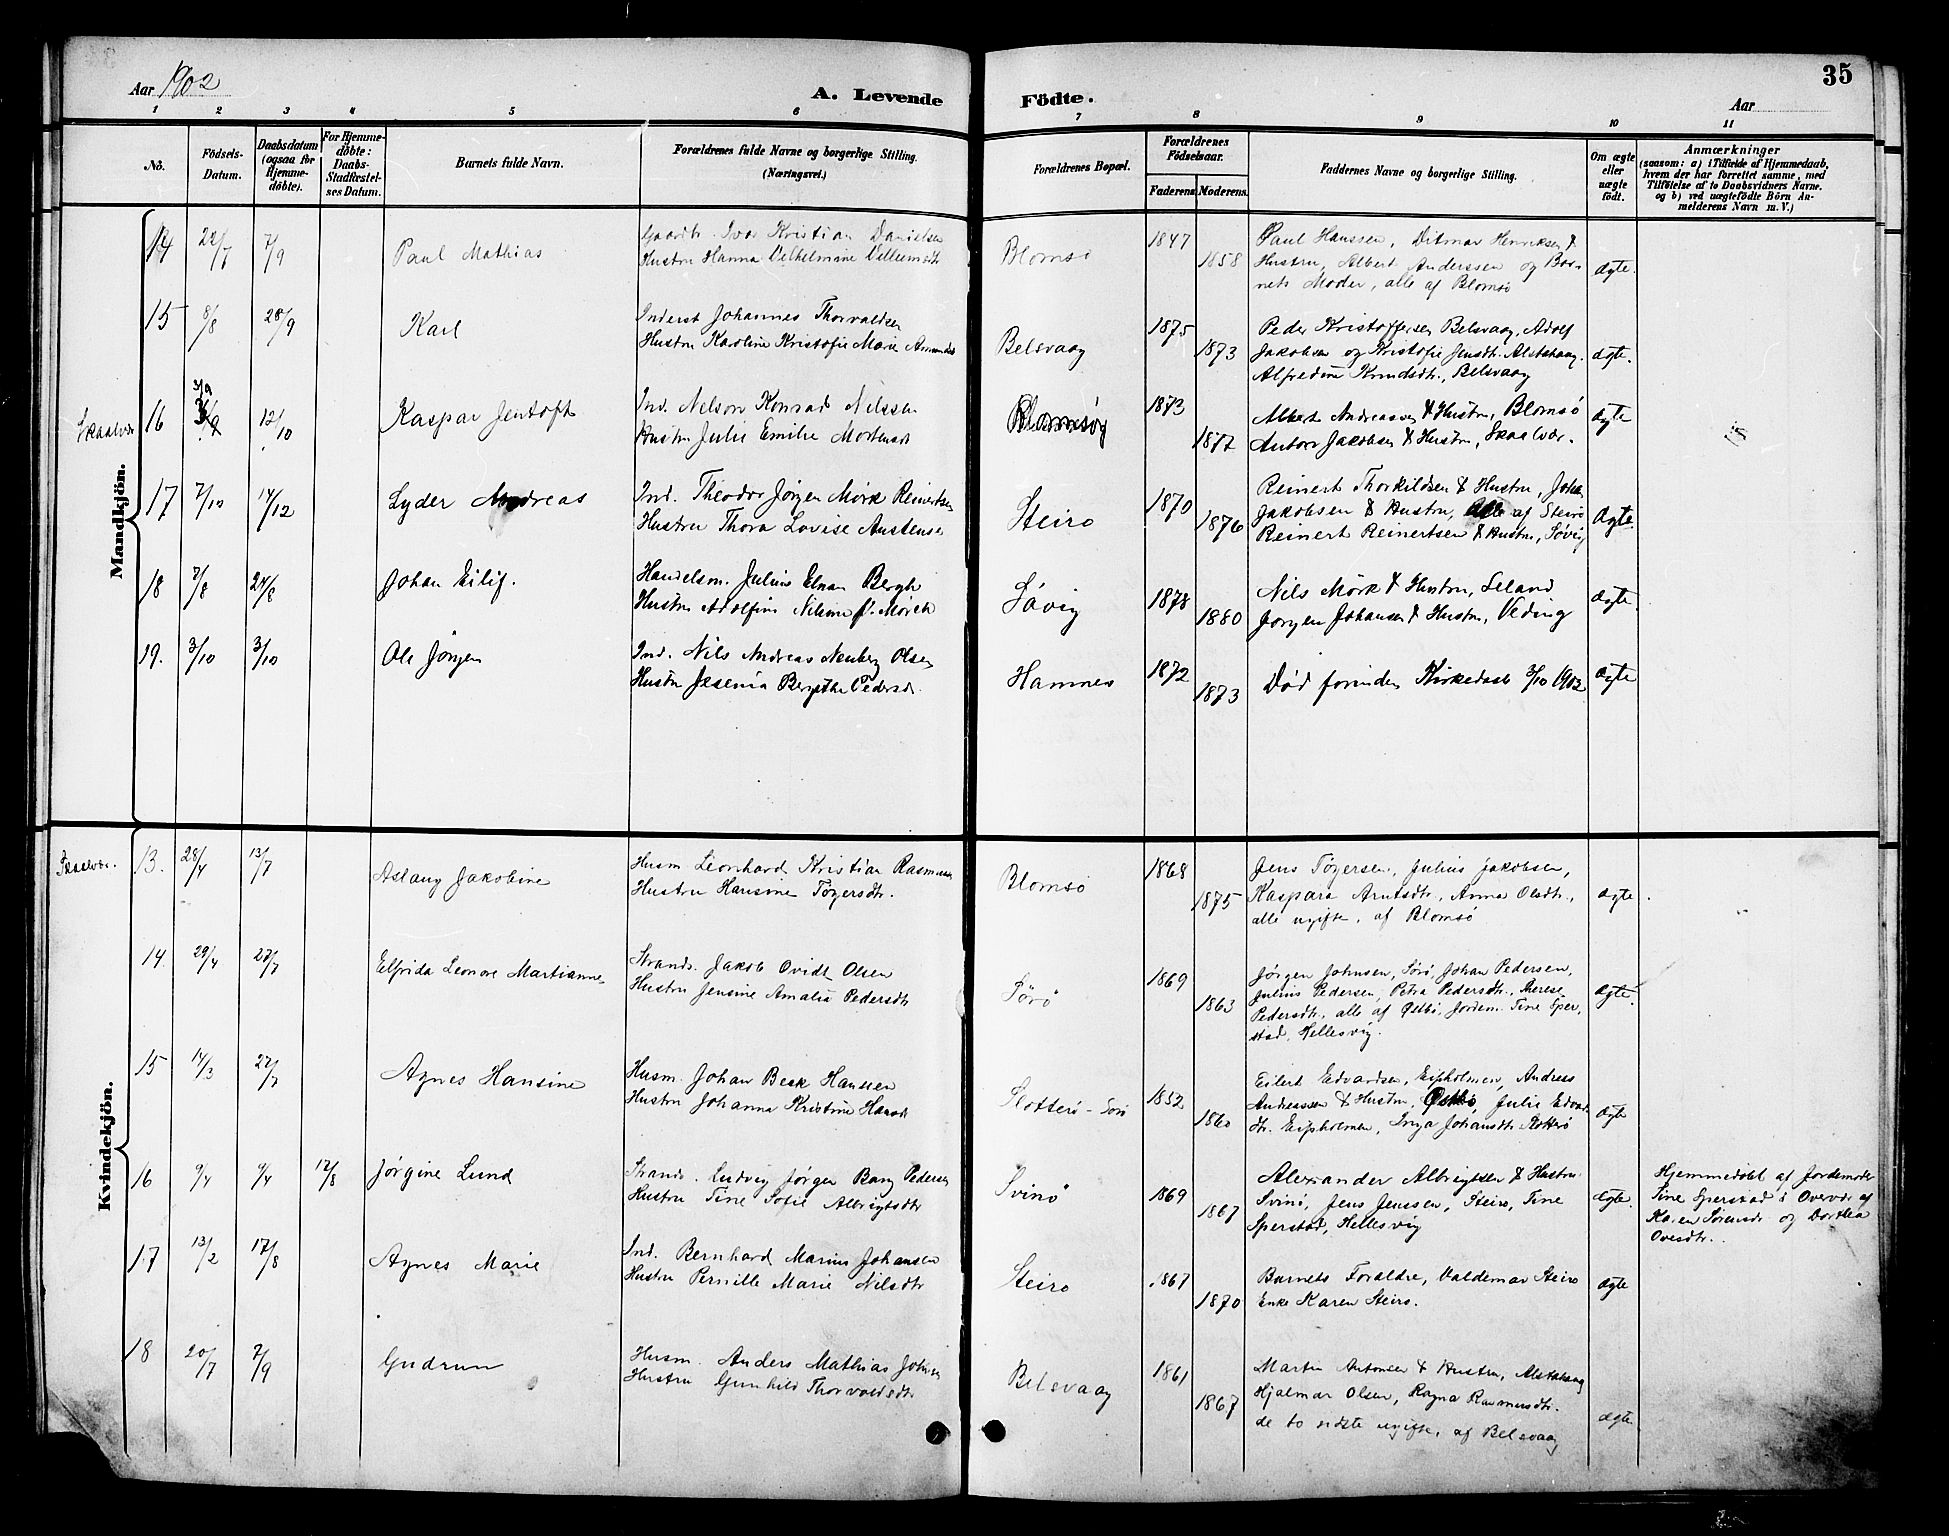 Aar 1902
A. Levende Födte.
Aar
35
1 2 3 4 5 6 7 8 9 10 11
No.
Födsels-Datum.
Daabsdatum (ogsaa for Hjemme-döbte).
For Hjemme-döbte: Daabs-Stadfæstelses Datum.
Barnets fulde Navn.
Forældrenes fulde Navne og borgerlige Stilling. (Næringsvei.)
Forældrenes Bopæl.
Forældrenes Födselsaar.
Faderens. Moderens.
Faddernes Navne og borgerlige Stilling.
Om ægte eller uægte födt.
Anmærkninger
(saasom: a) i Tilfælde af Hjemmedaab,
hvem der har forrettet samme, med
Tilföielse af to Daabsvidners Navne.
og b) ved uægtefödte Börn An-
melderens Navn m. V.)
Mandkjön.
14 22/7 7/9 Paul Mathias
Gaardb. Ivar Kristian Danielsen
Hustru Hanna Vilhelmine Villumsdt
Blomsö 1847 1858
Paul Hanssen, Ditmar Henriksen &
Hustru, Albert Anderssen og Bar-
nets Moder, alle af Blomsö
ægte.
15 8/8 28/9 Karl
Inderst Johannes Thorvaldsen
Hustru Karoline Kristofie Marie
Belsvaag 1875 1873
Peder Kristoffersen Belsvaag, Adolf
Jakobsen og Kristofie Jensdt. Alstahaug.
Alfredine Knudsdt., Belsvaag
ægte.
Skaalvær 16 12/10 Kaspar Jentoft
Ind. Nelson Konrad Nilssen
Hustru Julie Emilie Mortensdt
Blomsöy 1873 1872
Albert Andreassen & Hustru, Blomsö
Anton Jakobsen & Hustru, Skaalvær.
ægte
17 7/10 14/12 Lyder Andreas
Ind. Theodor Jörgen Mörk Reinertsen
Hustru Thora Lovise Austensen
Steiro 1870 1876
Reinert Thorkildsen & Hustru, Johan
Jakobsen & Hustru, Alle af Steiro
Reinert Reinertsen & Hustru, Sövig
ægte.
18 7/8 24/8 Johan Eilif.
Handelsm. Julius Elnan Bergh
Hustru Adolfine Nilsine Mörch
Sövig 1878 1880
Nils Mörk & Hustru, Leland
Jörgen Johansen & Hustru, Veding
ægte
19. 3/10 3/10 Ole Jörgen
Ind. Nils Andreas Neuberg Olsen
Hustru Jesenia Bergithe Pedersd.
Hamnes 1872 1873
Död forinden Kirkedaab 3/10 1902
ægte
Kvindekjön.
Skaalvær. 13. 28/4 13/7 Aslaug Jakobine
Husm Leonhard Kristian Rasmussen
Hustru Hansine Tögersdtr.
Blomsö 1868 1875
Jens Tögersen, Julius Jakobsen,
Kaspara Arntsdtr., Anna Olsdtr.,
alle ugifte, af Blomsö
ægte.
14. 29/4 27/7 Elfrida Leonore Martianne
Strands. Jakob Ovidt Olsen
Hustru Jensine Amalie Pedersdtr
Sörö 1869 1863
Jörgen Johnsen, Sörö, Johan Pedersen,
Julius Pedersen, Petra Pedersdtr., Therese
Pedersdtr., alle af Östbö, Jordem. Tine Sper-
stad, Hellesvig.
ægte.
15 14/3 27/7 Agnes Hansine
Husm. Johan Beck Hanssen
Hustru Johanna Kristine Hansdt
Slotterö - Sörö 1852 1860
Eilert Edvardsen, Eipholmen, Andreas
Andreassen & Hustru, Östbö, Julie Edvards
dtr. Eipholmen, Inga Johansdtr. Slotterö
ægte
16 9/4 9/4 17/8 Jörgine Lund
Strands. Ludvig Jörgen Bang Pedersen
Hustru Tine Sofie Albrigtsdtr
Svinö 1869 1867
Alexander Albrigtsen & Hustru
Svinö, Jens Jenssen, Steiro, Tine
Sperstad, Hellesvig
ægte.
Hjemmedöbt af Jordemoder
Tine Sperstad i Overvær af
Karen Sörensdr og Dorthea
Ovesdtr.
17 13/2 17/8 Agnes Marie
Ind. Bernhard Marius Johansen
Hustru Pernille Marie Nilsdtr
Steiro 1867 1870
Barnets Forældre, Valdemar Steiro
Enke Karen Steiro.
ægte
18 20/7 7/9 Gudrun
Husm. Anders Mathias Johnsen
Hustru Gunhild Thorvaldsdtr
Belsvaag 1861 1867
Martin Antonsen & Hustru, Alstahaug
Hjalmar Olsen, Ragna Rasmusdtr.
de to sidste ugifte, af Belsvaag
ægte